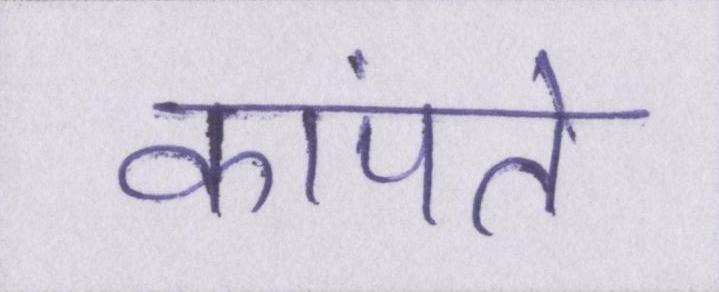 कांपते